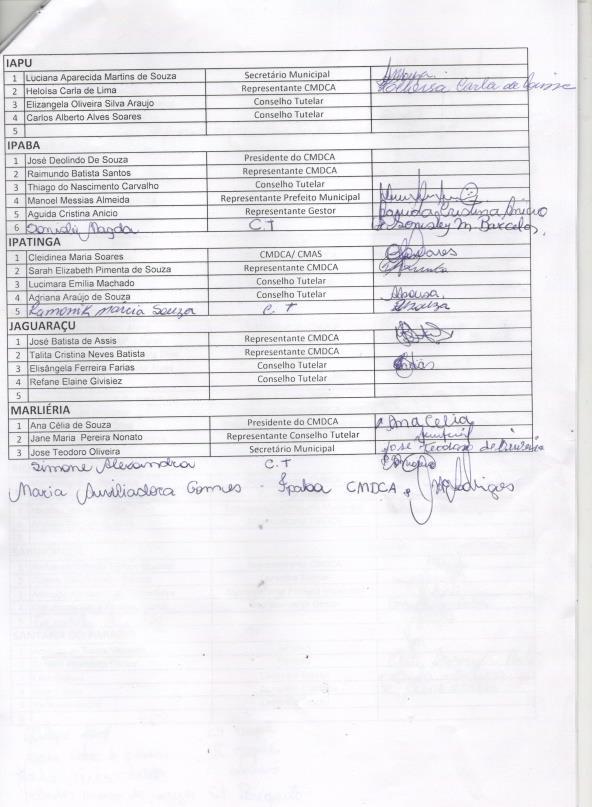 IAPU
1 Luciana Aparecida Martins de Souza Secretário Municipal
2 Heloisa Carla de Lima Representante CMDCA Heloisa Carla de Lima
3 Elizangela Oliveira Silva Araujo Conselho Tutelar
4 Carlos Alberto Alves Soares Conselho Tutelar
5
IPABA
1 José Deolindo De Souza Presidente do CMDCA
2 Raimundo Batista Santos Representante CMDCA
3 Thiago do Nascimento Carvalho Conselho Tutelar
4 Manoel Messias Almeida Representante Prefeito Municipal
5 Aguida Cristina Anicio Representante Gestor Aguida Cristina Anício
6 Magda C.T M. Barcelos
IPATINGA
1 Cleidinea Maria Soares CMDCA/ CMAS Soares
2 Sarah Elizabeth Pimenta de Souza Representante CMDCA
3 Lucimara Emília Machado Conselho Tutelar
4 Adriana Araújo de Souza Conselho Tutelar
5 Marcia Souza C. T Souza
JAGUARAÇU
1 José Batista de Assis Representante CMDCA
2 Talita Cristina Neves Batista Representante CMDCA
3 Elisângela Ferreira Farias Conselho Tutelar
4 Refane Elaine Givisiez Conselho Tutelar
5
MARLIÉRIA
1 Ana Célia de Souza Presidente do CMDCA Ana Celia
2 Jane Maria Pereira Nonato Representante Conselho Tutelar
3 Jose Teodoro Oliveira Secretário Municipal José Teodoro de Oliveira
Simone Alexandra C.T
Maria Auxiliadora Gomes - Ipaba CMDCA Rodrigues